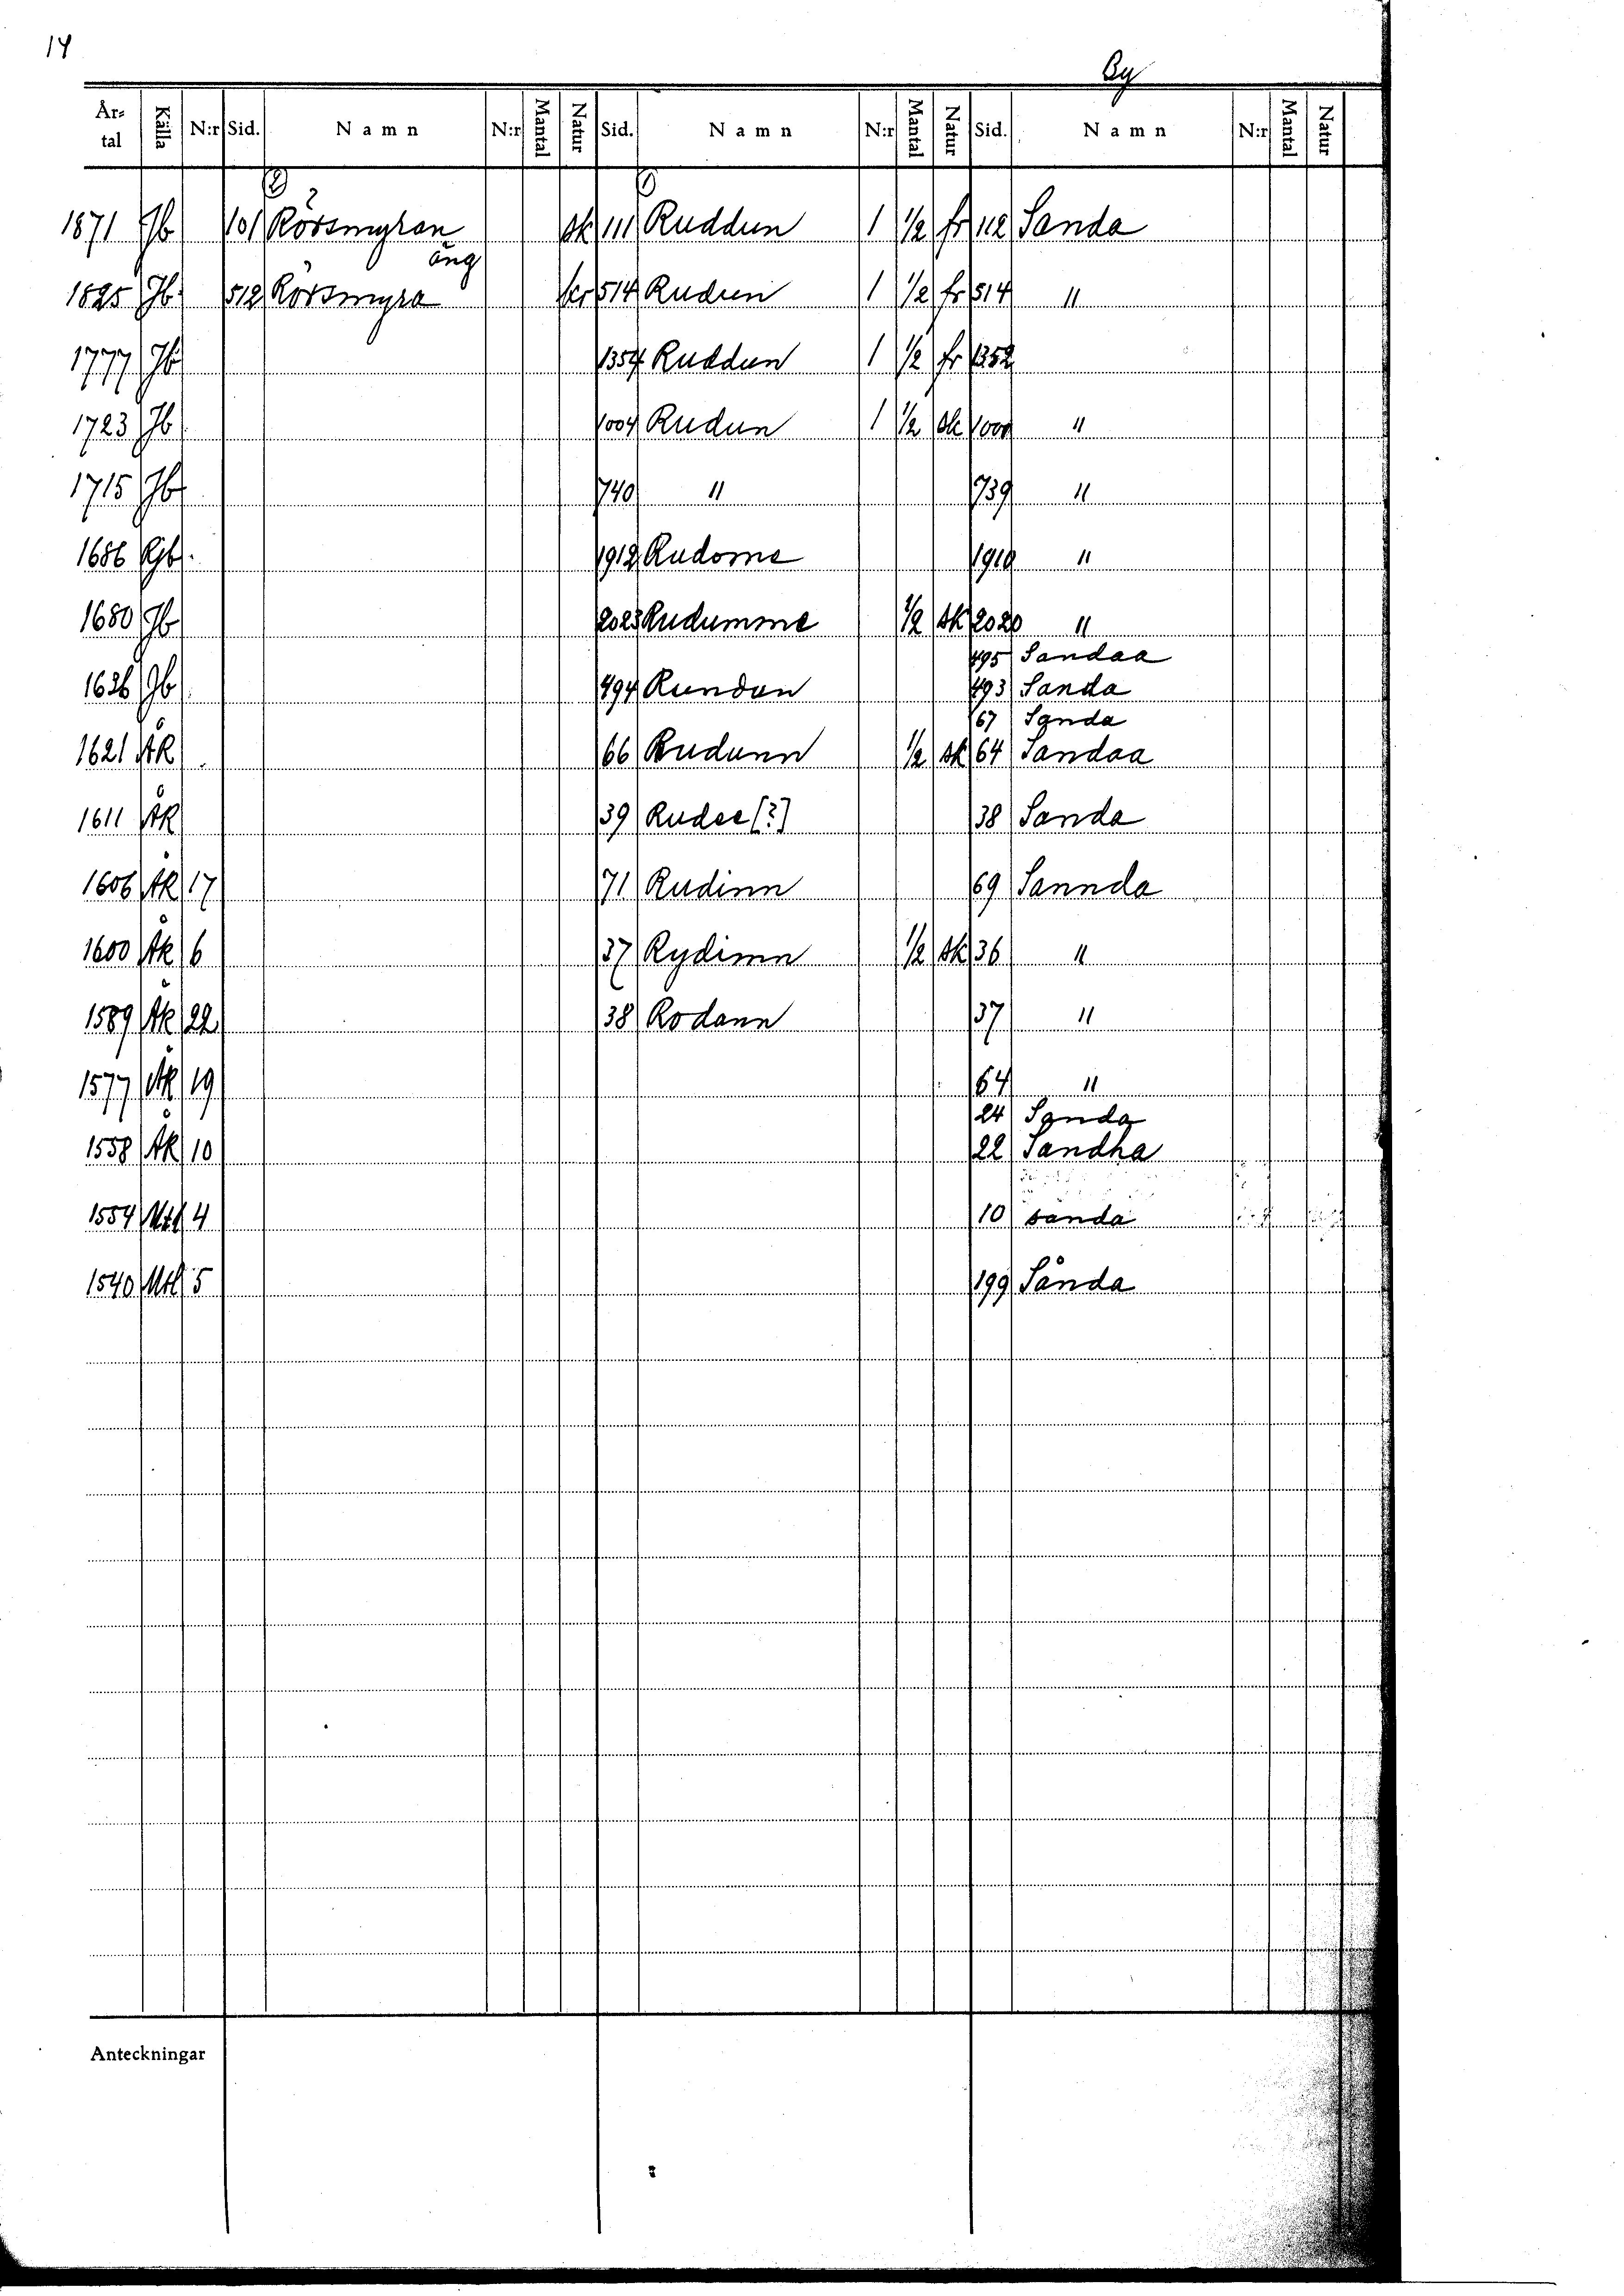 14
By
År- tal Källa N:r Sid. Namn N:r Mantal Natur Sid. Namn N:r Mantal Natur Sid. Namn N:r Mantal Natur
2 1
1871 Jb 101 Rörsmyran sk 111 Ruddun 1 1/2 fr 112 Sanda
äng
1825 Jb 512 Rörsmyra kr 514 Rudun 1 1/2 fr 514 "
1777 Jb 1354 Ruddun 1 1/2 fr 1352
1723 Jb 1004 Rudun 1 1/2 sk 1000 "
1715 Jb 740 " 739 "
1686 Rjb 1912 Rudome 1910 "
1680 Jb 2023 Rudumme 1/2 sk 2020 "
495 Sandaa
1636 Jb 494 Rundan 493 Sanda
67 Sanda
1621 ÅR 66 Rudunn 1/2 sk 64 Sandaa
1611 ÅR 39 Rudee [?] 38 Sanda
1606 ÅR 17 71 Rudinn 69 Sannda
1600 ÅR 6 37 Rydimn 1/2 sk 36 "
1589 ÅR 22 38 Rodann 37 "
1577 ÅR 19 64 "
24 Sanda
1558 ÅR 10 22 Sandha
1554 Mtl 4 10 sanda
1540 Mtl 5 199 Sånda
Anteckningar